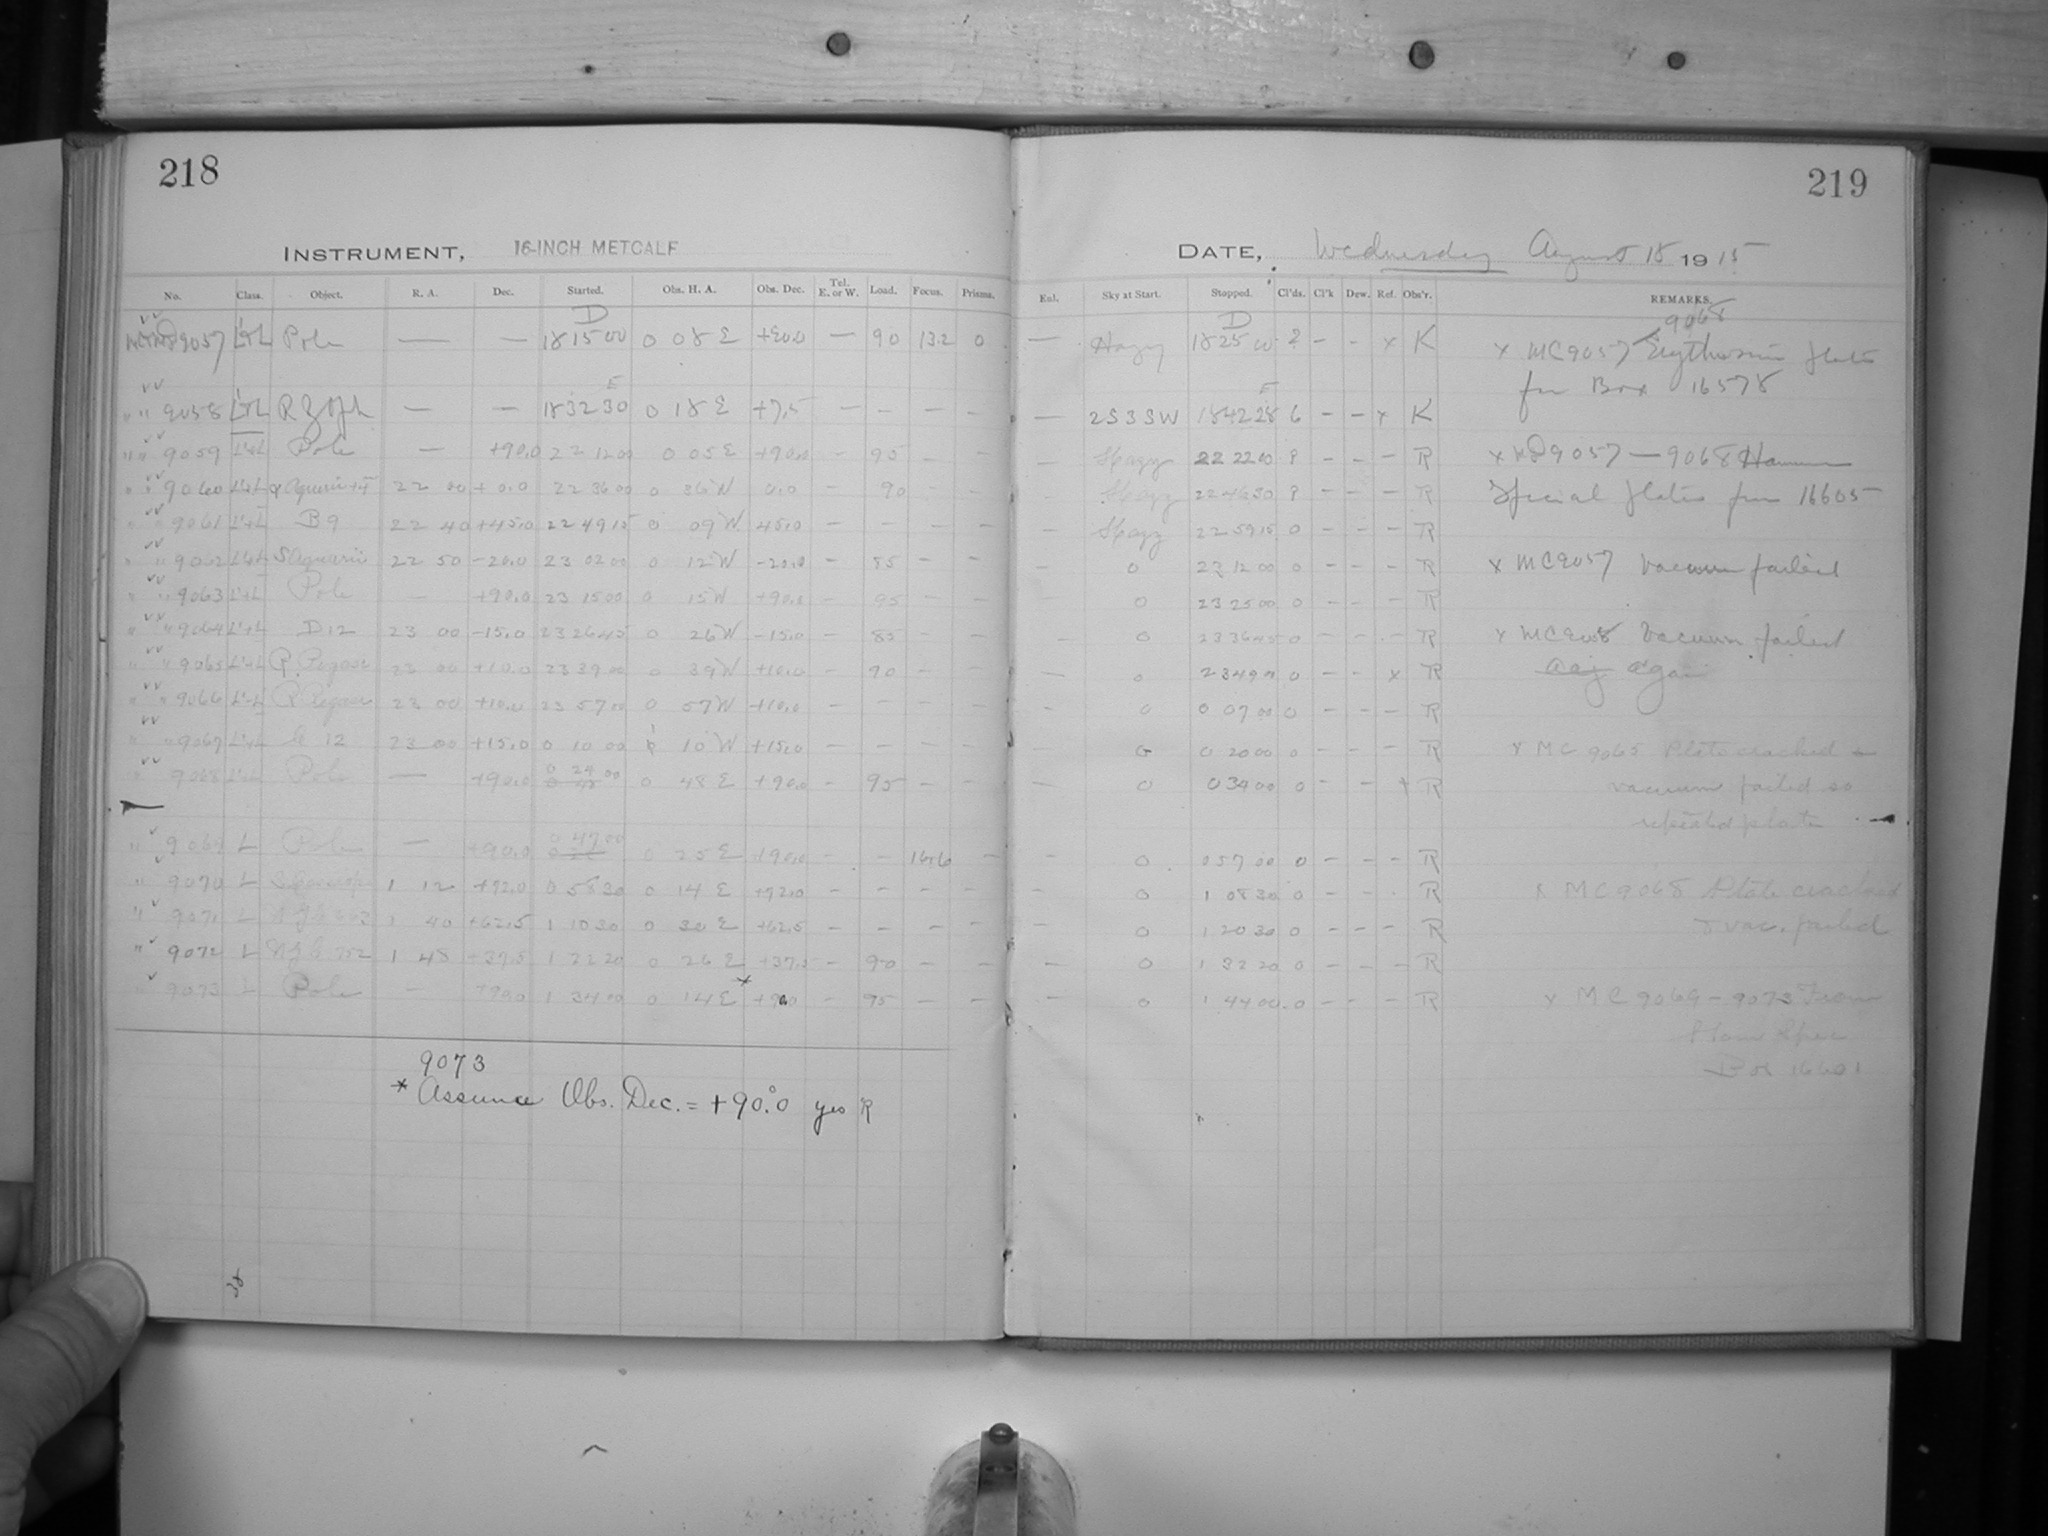 218
INSTRUMENT, 16-INCH METCALF
No. Class. Object. R. A. Dec. Started. Obs. H. A. Obs. Dec. Tel. E. or W. Load. Focus. Prisms.
9057 L'+L Pole — — D 18 15 00 0 08 E +90.0 — 90 13.2 0
" " 9058 L'+L — — E 18 32 30 0 18 E +7.5 — — — —
" " 9059 L'+L Pole — +90.0 22 12 00 0 05 E +90.0 — 95 — —
" " 9060 L'+L 22 00 + 0.0 22 36 00 0 36 W 0.0 — 90 — —
" " 9061 L'+L B 9 22 40 +45.0 22 49 15 0 09 W 45.0 — — — —
" " 9062 L'+L S Aquarii 22 50 -20.0 23 02 00 0 12 W -20.0 — 85 — —
" " 9063 L'+L Pole — +90.0 23 15 00 0 15 W +90.0 — 95 — —
" " 9064 L'+L D 12 23 00 -15.0 23 26 45 0 26 W -15.0 — 85 — —
" " 9065 L'+L R Pegasi 23 00 +10.0 23 39 00 0 39 W +10.0 — 90 —
" " 9066 L'+L R Pegasi 23 00 +10.0 23 57 00 0 57 W +10.0 — — — —
" " 9067 L'+L 12 23 00 +15.0 0 10 00 10 W +15.0 — — — —
" 9068 L'+L Pole — +90.0 0 24 00 0 48 E +90.0 — 95 —
" 9069 L Pole — +90.0 0 47 00 0 25 E +90.0 — — 16.6 —
" 9070 L 1 12 +72.0 0 58 30 0 14 E +72.0 — — — —
" 9071 L 1 40 +62.5 1 10 30 0 30 E +62.5 — — — —
" 9072 L 1 48 +37.5 1 22 20 0 26 E +37.5 — 90 — —
" 9073 L Pole — +90.0 1 34 00 0 14 E * — 95 — —
9073
* Assume Obs. Dec. = +90°.0 yes R
219
DATE, Wednesday August 18 1915
Enl. Sky at Start. Stopped. Cl'ds. Cl'k Dew. Ref. Obs'r. REMARKS.
— Hazy D 18 25 00 ? — — x K
— 2S3SW E 18 42 28 6 — — x K
— Hazy 22 22 00 ? — — — R
— Hazy 22 46 30 ? — — — R
Hazy 22 59 15 0 — — — R
— 0 23 12 00 0 — — — R
0 23 25 00 0 — — — R
— 0 23 36 45 0 — — — R
— 0 23 49 00 0 — — x R
0 0 07 00 0 — — — R
G 0 20 00 0 — — — R
— 0 0 34 00 0 — — x R
— 0 0 57 00 0 — — — R
— 0 1 08 30 0 — — — R
— 0 1 20 30 0 — — — R
— 0 1 32 20 0 — — — R
— 0 1 44 00 0 — — — R
9068
x MC 9057 Erythrosin plates
for Box 16578
9057 — 9068
Special plates from 16605
x MC 9057 Vacuum failed
x MC 9058 Vacuum failed
again
x MC 9065 Plate cracked &
vacuum failed so
repeated plate
x MC 9068 Plate cracked
& vac. failed
x MC 9069 - 9073 From
Box 16601